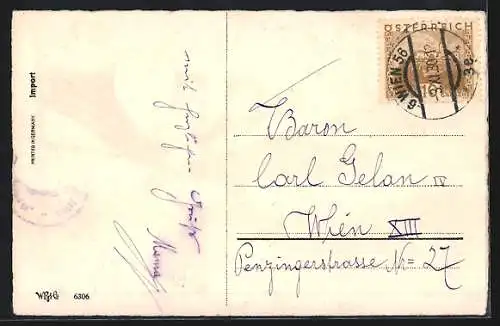 Import
PRINTED IN GERMANY
mit herzlichen
Grüße
Mama
6306
ÖSTERREICH
6 WIEN 56
3e
16
Baron
Carl Gelan IV
Wien XIII
Penzingerstrasse N= 27